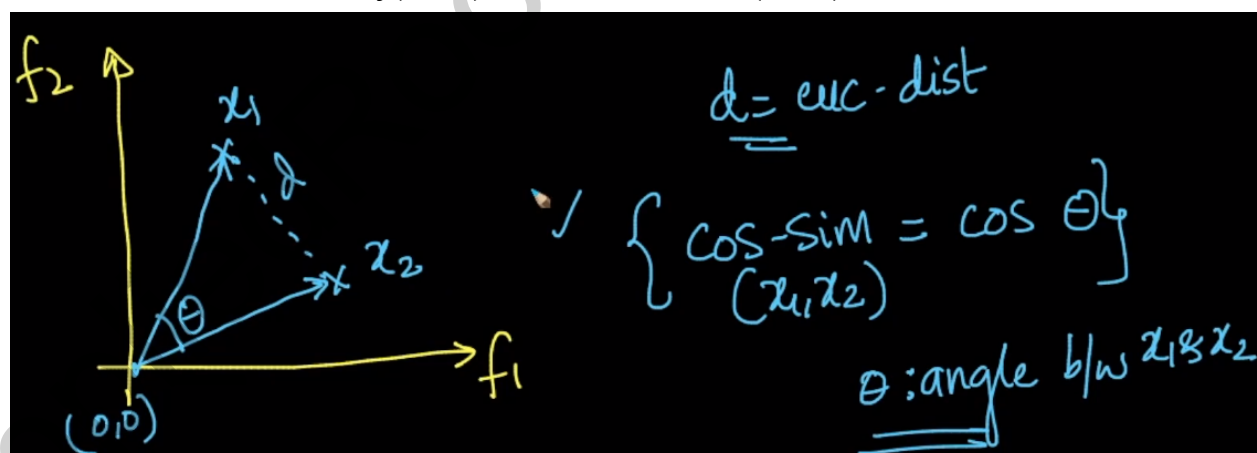 f2
x1
d
x2
θ
f1
(0,0)
d = euc-dist
✓ { cos-sim = cos θ }
(x1, x2)
θ : angle b/w x1 & x2